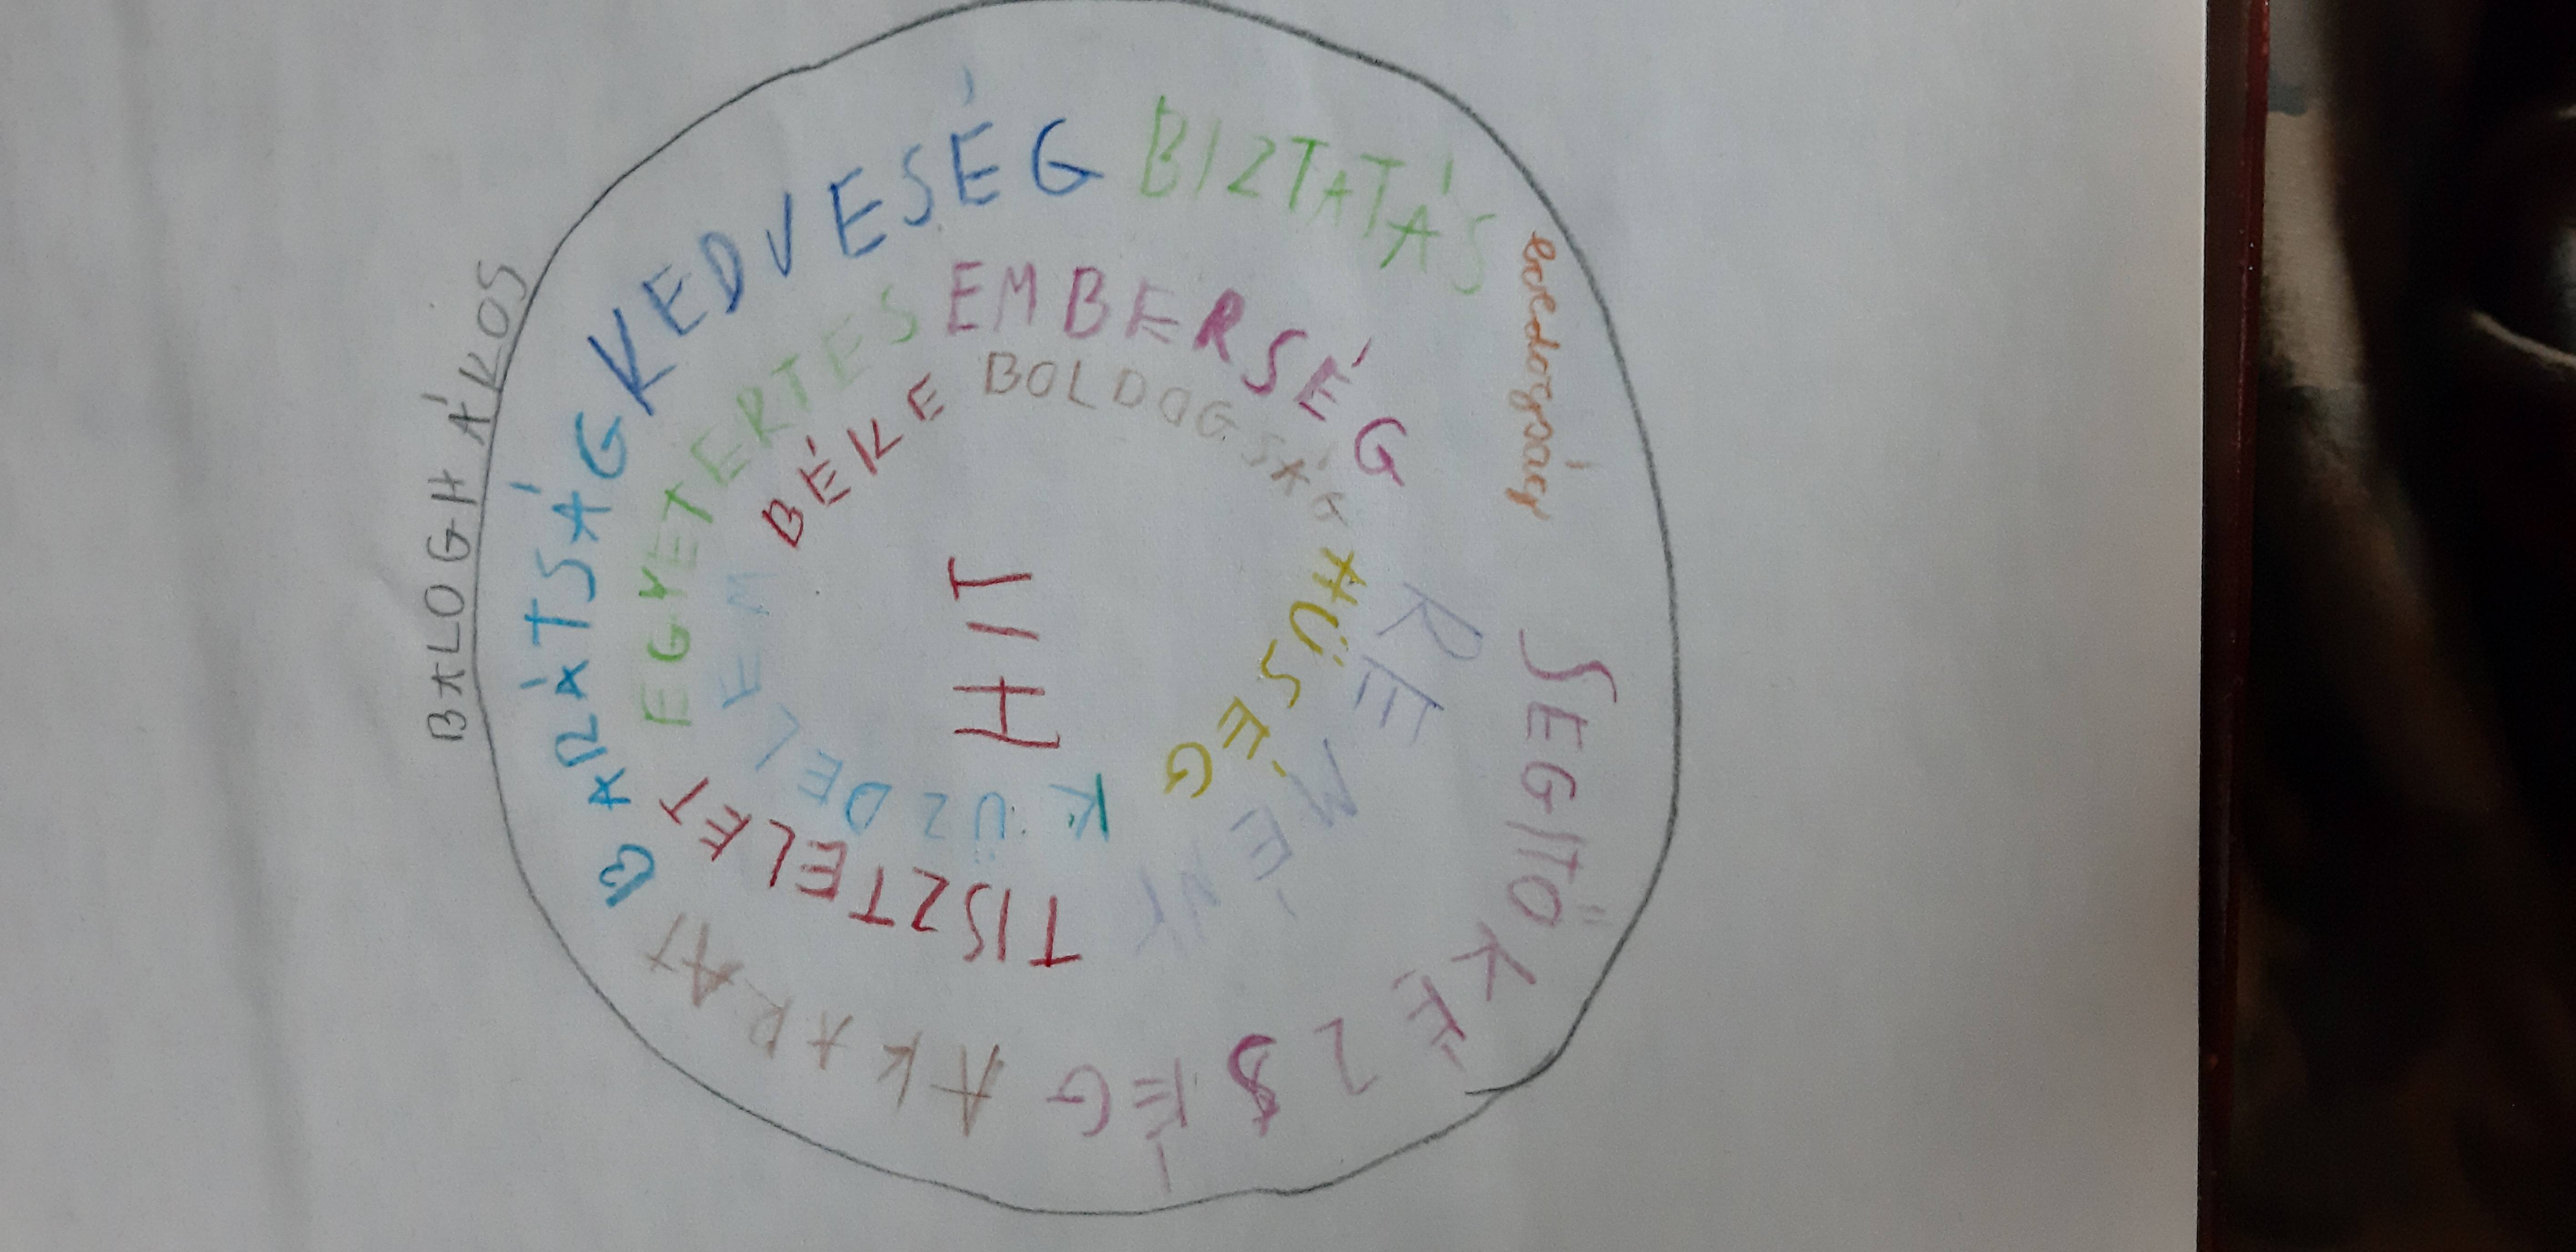 BALOGH ÁKOS
BARÁTSÁG
KEDVESÉG
BIZTATÁS
SEGITŐKÉZSÉG
AKARAT
EGYETERTES
EMBERSÉG
REMÉNY
TISZTELET
BÉKE
BOLDOGSÁG
HÜSÉG
KÜZDELEM
HIT